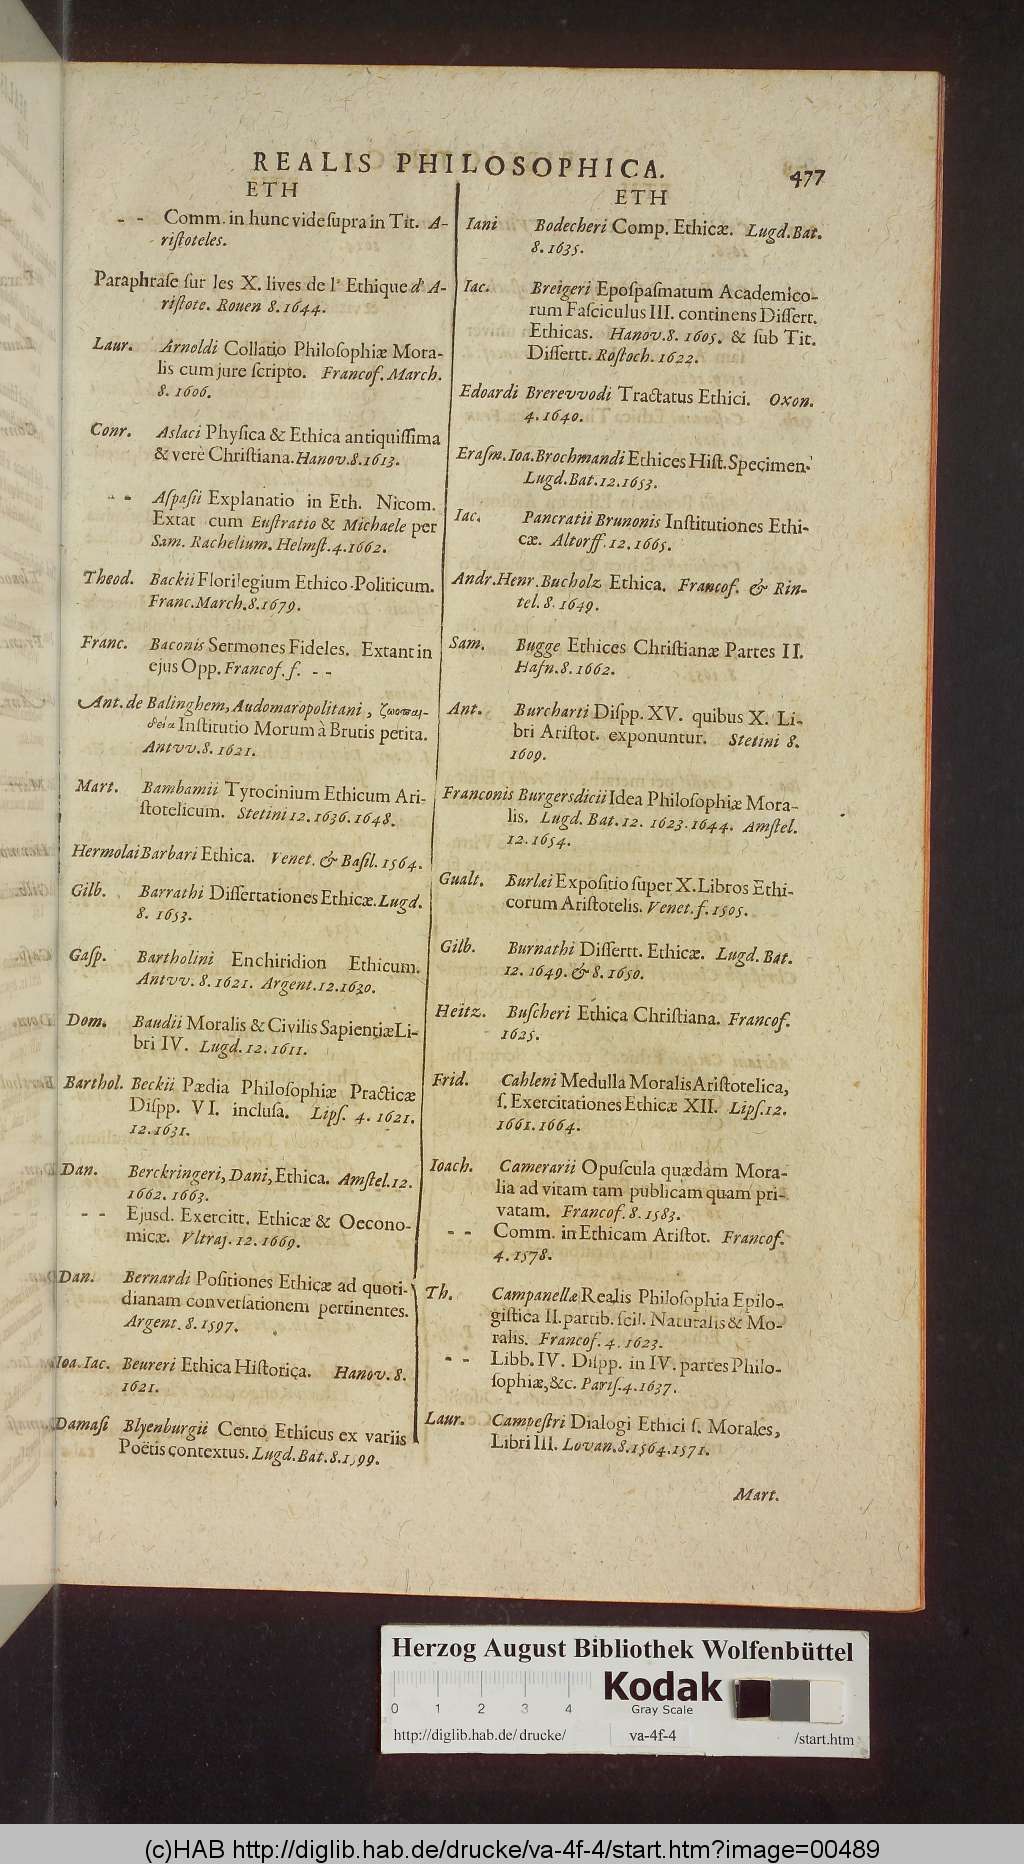 REALIS PHILOSOPHICA.
477
ETH
- - Comm. in hunc vide supra in Tit. A-
ristoteles.
Paraphrase sur les X. lives de l' Ethique d' A-
ristote. Rouen 8. 1644.
Laur. Arnoldi Collatio Philosophiæ Mora-
lis cum jure scripto. Francof. March.
8. 1606.
Conr. Aslaci Physica & Ethica antiquissima
& verè Christiana. Hanov. 8. 1613.
- - Aspasii Explanatio in Eth. Nicom.
Extat cum Eustratio & Michaele per
Sam. Rachelium. Helmst. 4. 1662.
Theod. Backii Florilegium Ethico-Politicum.
Franc. March. 8. 1679.
Franc. Baconis Sermones Fideles. Extant in
ejus Opp. Francof. f. - -
Ant. de Balinghem, Audomaropolitani, ζωοπαι-
δεία Institutio Morum à Brutis petita.
Antvv. 8. 1621.
Mart. Bambamii Tyrocinium Ethicum Ari-
stotelicum. Stetini 12. 1636. 1648.
Hermolai Barbari Ethica. Venet. & Basil. 1564.
Gilb. Barrathi Dissertationes Ethicæ. Lugd.
8. 1653.
Gasp. Bartholini Enchiridion Ethicum.
Antvv. 8. 1621. Argent. 12. 1630.
Dom. Baudii Moralis & Civilis Sapientiæ Li-
bri IV. Lugd. 12. 1611.
Barthol. Beckii Pædia Philosophiæ Practicæ
Dispp. VI. inclusa. Lips. 4. 1621.
12. 1631.
Dan. Berckringeri, Dani, Ethica. Amstel. 12.
1662. 1663.
- - Ejusd. Exercitt. Ethicæ & Oecono-
micæ. Vltraj. 12. 1669.
Dan. Bernardi Positiones Ethicæ ad quoti-
dianam conversationem pertinentes.
Argent. 8. 1597.
Ioa. Iac. Beureri Ethica Historica. Hanov. 8.
1621.
Damasi Blyenburgii Cento Ethicus ex variis
Poëtis contextus. Lugd. Bat. 8. 1599.
ETH
Iani Bodecheri Comp. Ethicæ. Lugd. Bat.
8. 1635.
Iac. Breigeri Epospasmatum Academico-
rum Fasciculus III. continens Dissert.
Ethicas. Hanov. 8. 1605. & sub Tit.
Dissertt. Rostoch. 1622.
Edoardi Brerevvodi Tractatus Ethici. Oxon.
4. 1640.
Erasm. Ioa. Brochmandi Ethices Hist. Specimen.
Lugd. Bat. 12. 1653.
Iac. Pancratii Brunonis Institutiones Ethi-
cæ. Altorff. 12. 1665.
Andr. Henr. Bucholz Ethica. Francof. & Rin-
tel. 8. 1649.
Sam. Bugge Ethices Christianæ Partes II.
Hafn. 8. 1662.
Ant. Burcharti Dispp. XV. quibus X. Li-
bri Aristot. exponuntur. Stetini 8.
1609.
Franconis Burgersdicii Idea Philosophiæ Mora-
lis. Lugd. Bat. 12. 1623. 1644. Amstel.
12. 1654.
Gualt. Burlæi Expositio super X. Libros Ethi-
corum Aristotelis. Venet. f. 1505.
Gilb. Burnathi Dissertt. Ethicæ. Lugd. Bat.
12. 1649. & 8. 1650.
Heitz. Buscheri Ethica Christiana. Francof.
1625.
Frid. Cahleni Medulla Moralis Aristotelica,
s. Exercitationes Ethicæ XII. Lips. 12.
1661. 1664.
Ioach. Camerarii Opuscula quædam Mora-
lia ad vitam tam publicam quam pri-
vatam. Francof. 8. 1583.
- - Comm. in Ethicam Aristot. Francof.
4. 1578.
Th. Campanellæ Realis Philosophia Epilo-
gistica II. partib. scil. Naturalis & Mo-
ralis. Francof. 4. 1623.
- - Libb. IV. Dispp. in IV. partes Philo-
sophiæ, &c. Paris. 4. 1637.
Laur. Campestri Dialogi Ethici s. Morales,
Libri III. Lovan. 8. 1564. 1571.
Mart.
Herzog August Bibliothek Wolfenbüttel
0 1 2 3 4
Kodak
Gray Scale
http://diglib.hab.de/drucke/ va-4f-4 /start.htm
(c)HAB http://diglib.hab.de/drucke/va-4f-4/start.htm?image=00489